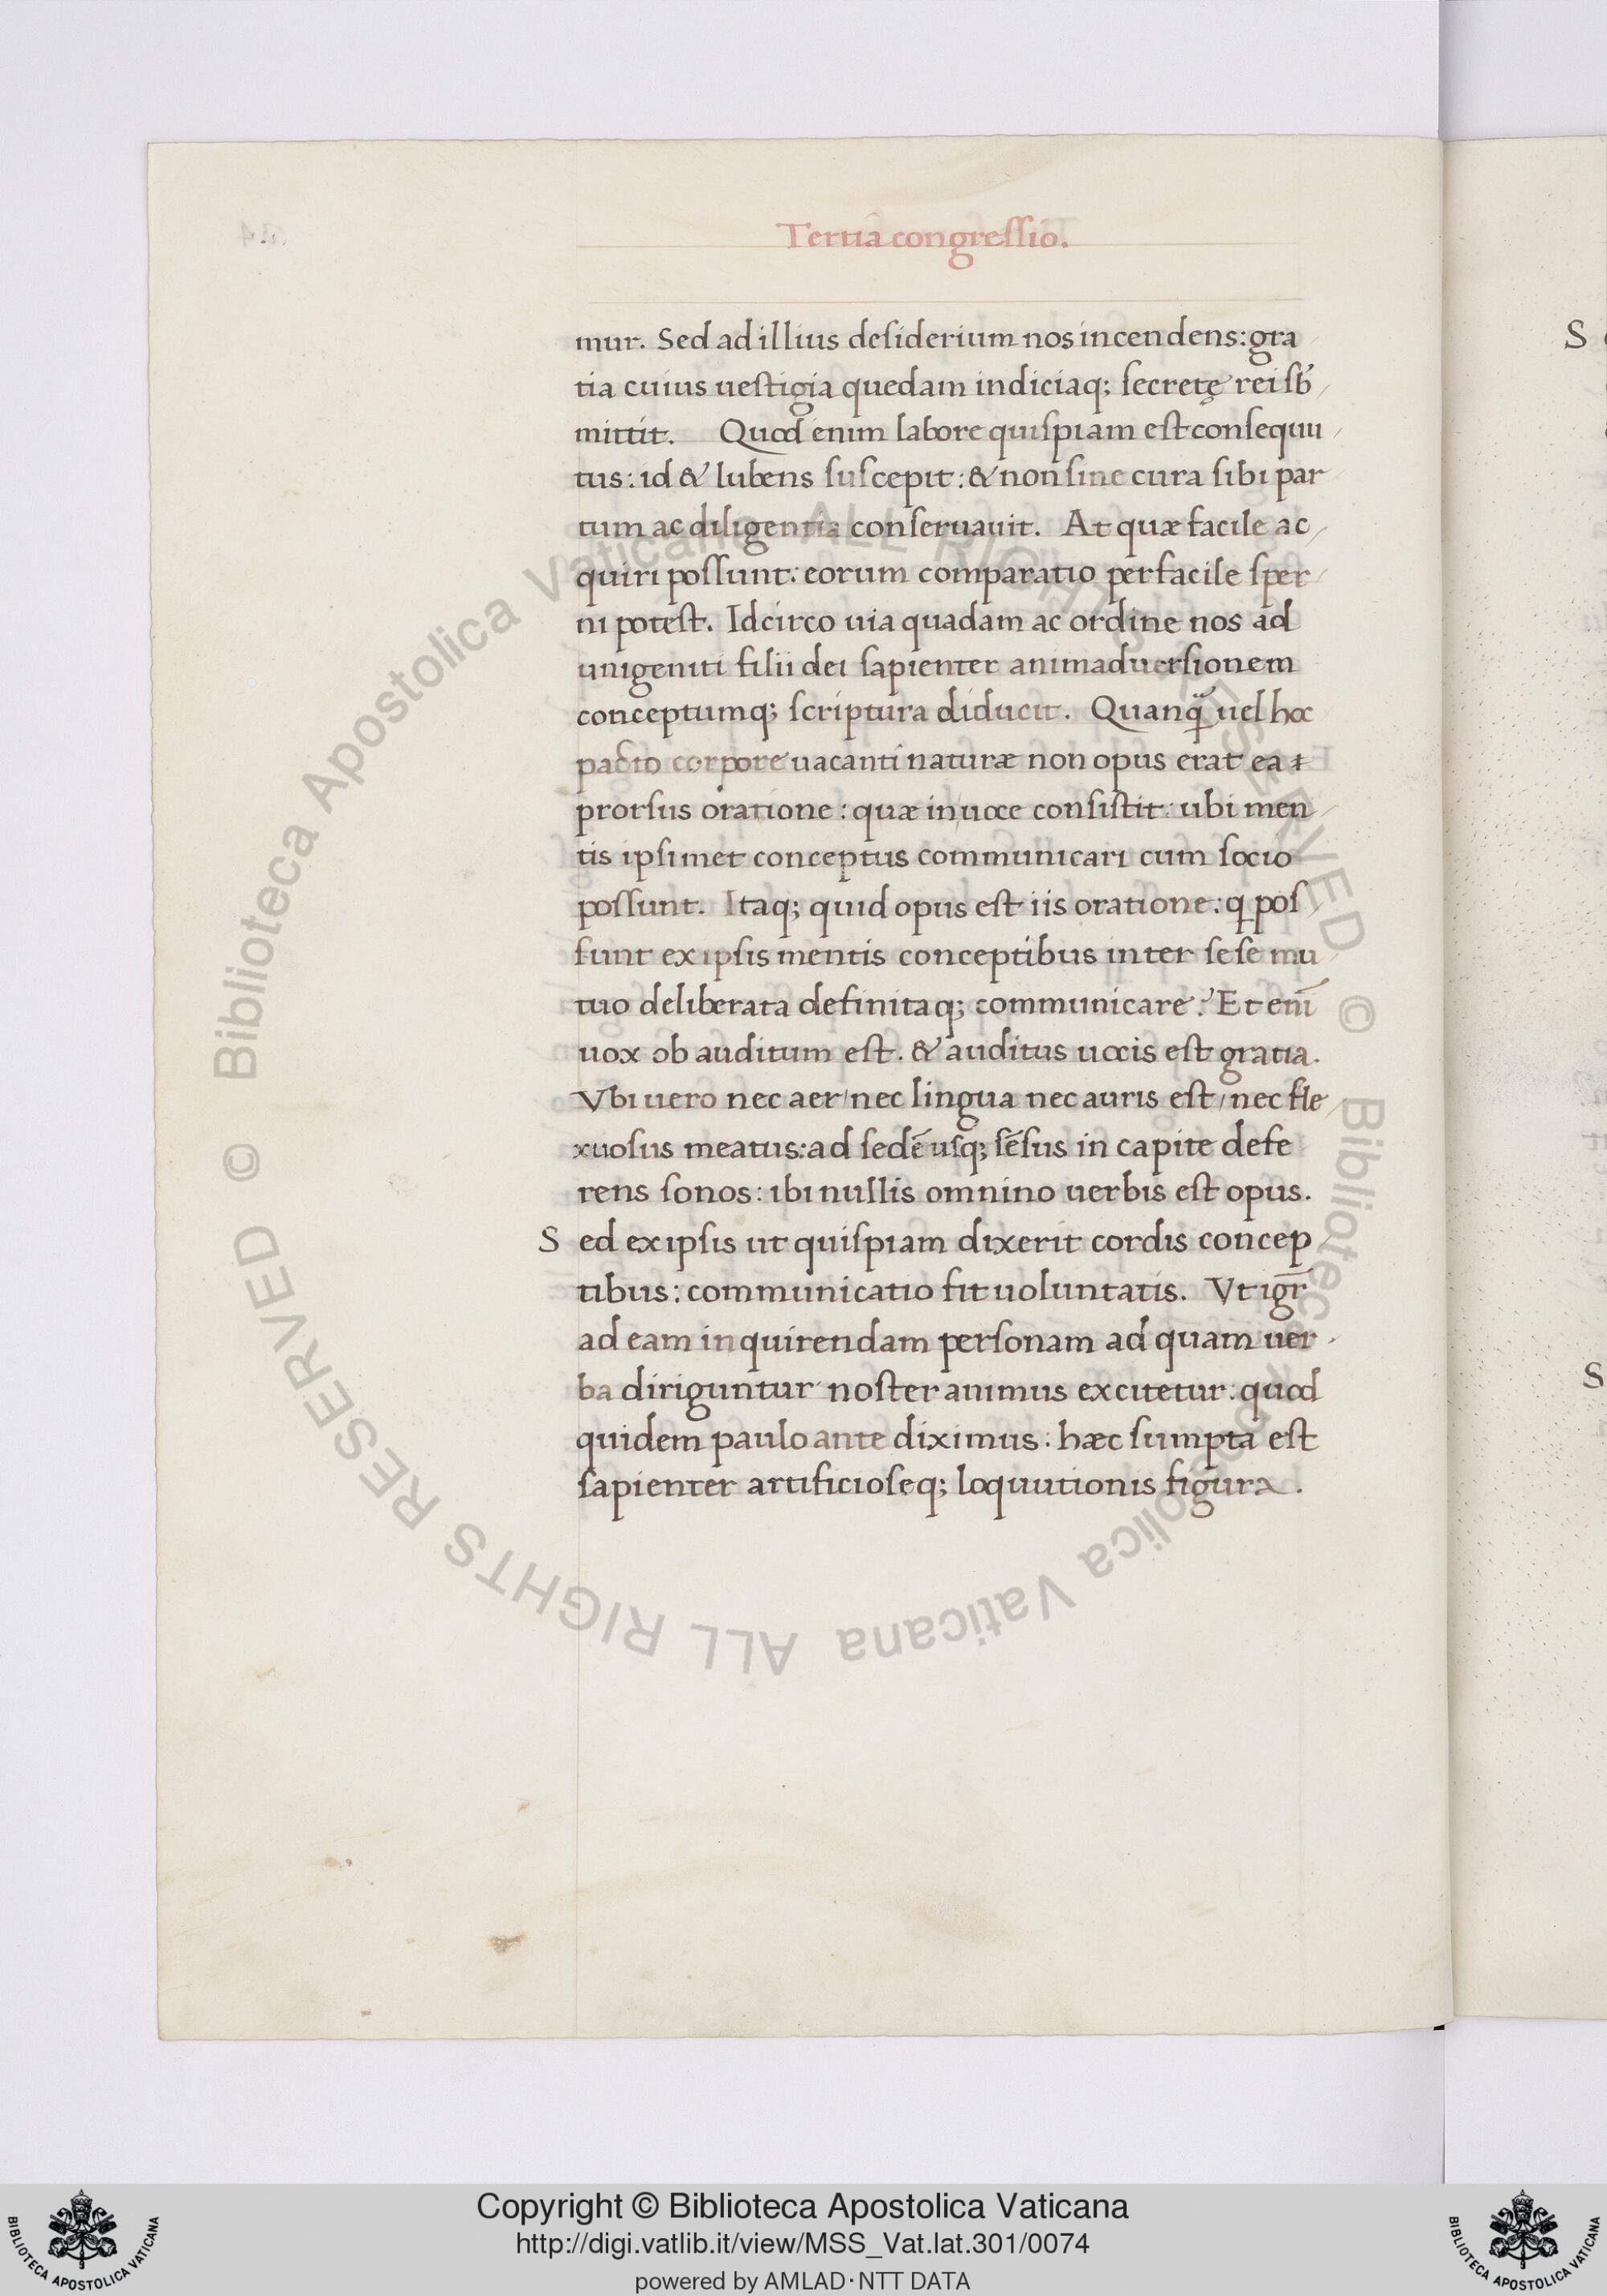 Tertia congressio.
mur. Sed ad illius desiderium nos incendens: gra
tia cuius uestigia quedam indiciaq; secretę rei sb̃
mittit. Quod enim labore quispiam est consequu
tus: id & lubens suscepit: & non sine cura sibi par
tum ac diligentia conseruauit. At quæ facile ac
quiri possunt: eorum comparatio perfacile sper
ni potest. Idcirco uia quadam ac ordine nos ad
unigeniti filii dei sapienter animaduersionem
conceptumq; scriptura diducit. Quanq̃ uel hoc
pacto corpore uacanti naturæ non opus erat ea
prorsus oratione: quæ in uoce consistit: ubi men
tis ipsimet conceptus communicari cum socio
possunt. Itaq; quid opus est iis oratione: q pos
sunt ex ipsis mentis conceptibus inter sese mu
tuo deliberata definitaq; communicare? Et eni͂
uox ob auditum est. & auditus uocis est gratia.
Vbi uero nec aer/ nec lingua nec auris est/ nec fle
xuosus meatus: ad sedẽ usq; sẽsus in capite defe
rens sonos: ibi nullis omnino uerbis est opus.
S ed ex ipsis ut quispiam dixerit cordis concep
tibus: communicatio fit uoluntatis. Vt igr̄
ad eam inquirendam personam ad quam uer
ba diriguntur noster animus excitetur: quod
quidem paulo ante diximus: hæc sumpta est
sapienter artificioseq; loquutionis figura.
S
S
© Biblioteca Apostolica Vaticana ALL RIGHTS RESERVED © Biblioteca Apostolica Vaticana ALL RIGHTS RESERVED
Copyright © Biblioteca Apostolica Vaticana
http://digi.vatlib.it/view/MSS_Vat.lat.301/0074
powered by AMLAD·NTT DATA
BIBLIOTECA APOSTOLICA VATICANA
BIBLIOTECA APOSTOLICA VATICANA